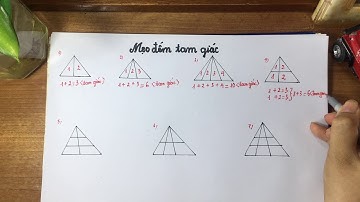 Mẹo đếm tam giác
1) 2) 3) 4)
1 2
1 2 3
1 2 3 4
1 2
1 2
1 + 2 = 3 (tam giác)
1 + 2 + 3 = 6 (tam giác)
1 + 2 + 3 + 4 = 10 (tam giác)
1 + 2 = 3
1 + 2 = 3
3 + 3 = 6 (tam giác
5) 6) 7)